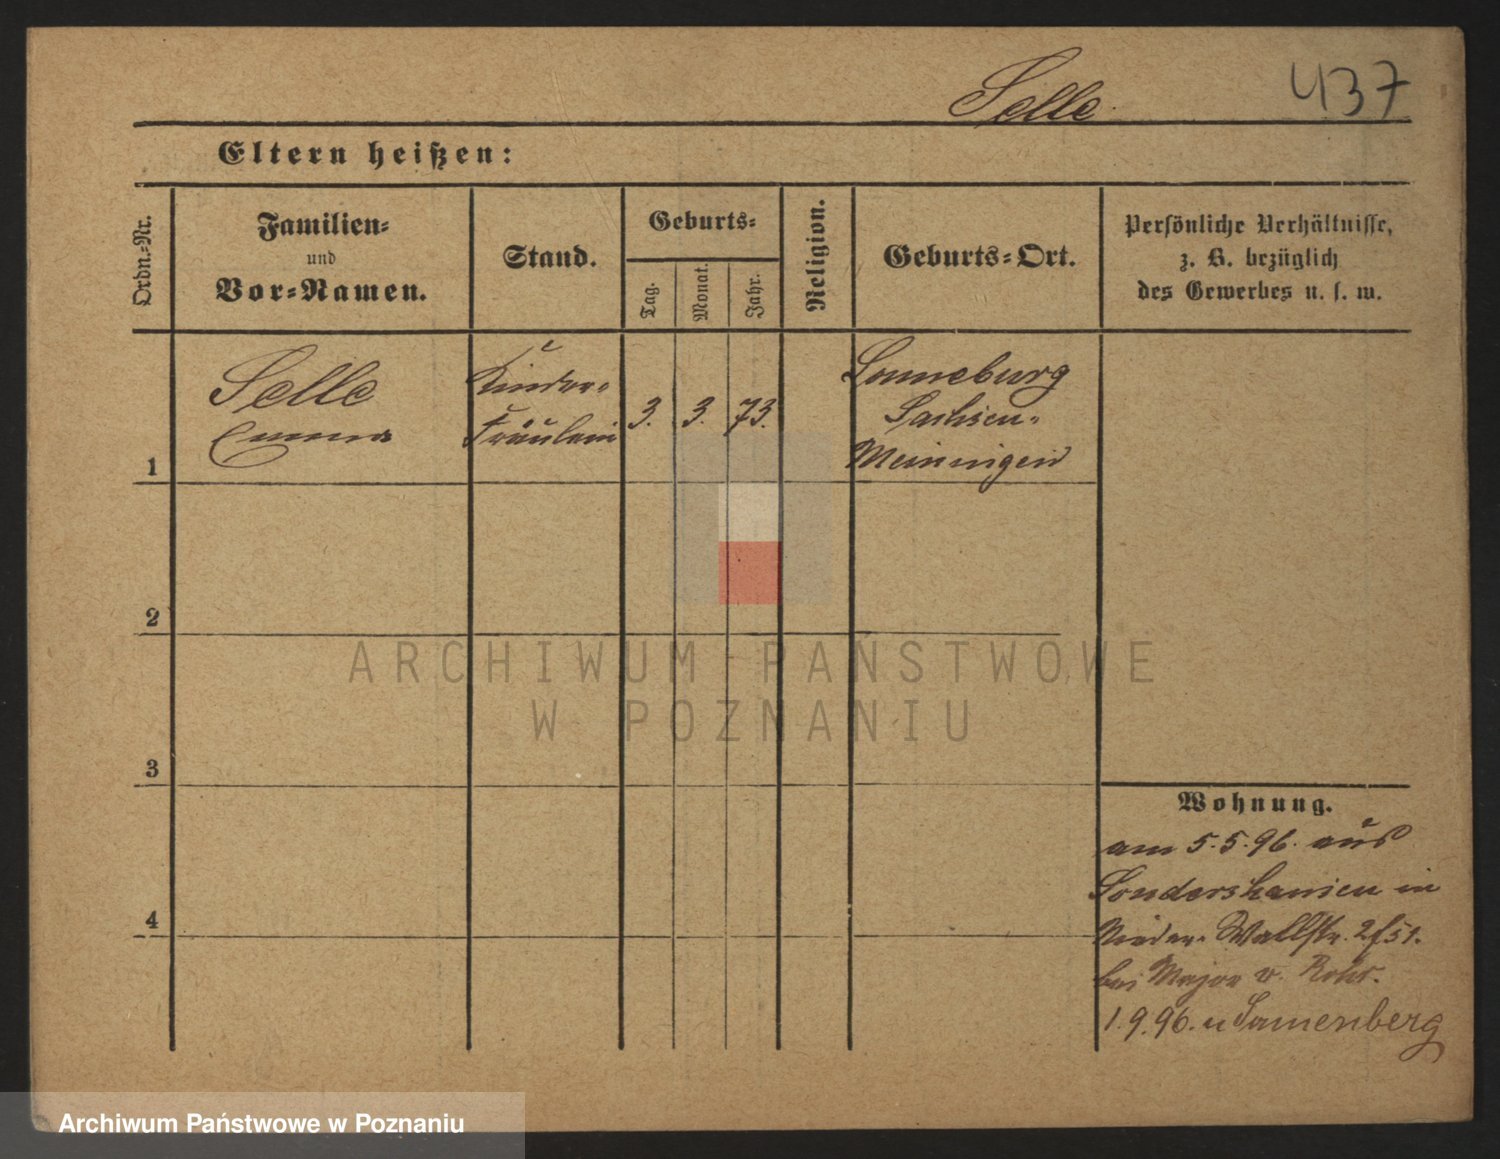 Selle
437
Eltern heißen:
Ordn.-Nr.
Familien-
und
Vor-Namen.
Stand.
Geburts-
Tag.
Monat.
Jahr.
Religion.
Geburts-Ort.
Persönliche Verhältnisse,
z. B. bezüglich
des Gewerbes u. s. w.
1
Selle
Emma
Kinder-
Fräulein
3. 3. 73.
Sonneburg
Sachsen-
Meiningen
2
3
4
Wohnung.
am 5.5.96. aus
Sondershausen in
Nieder-Wallstr. 2
bei Major v. Rohr.
1.9.96. n
ARCHIWUM PAŃSTWOWE
W POZNANIU
Archiwum Państwowe w Poznaniu